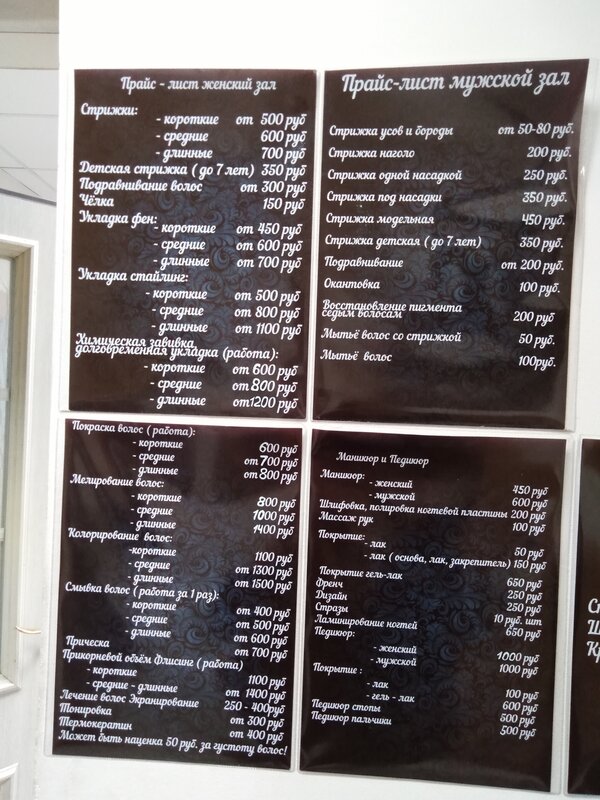 Прайс - лист женский зал
Стрижки:
- короткие от 500 руб
- средние 600 руб
- длинные 700 руб
Детская стрижка ( до 7 лет) 350 руб
Подравнивание волос от 300 руб
Чёлка 150 руб
Укладка фен:
- короткие от 450 руб
- средние от 600 руб
- длинные от 700 руб
Укладка стайлинг:
- короткие от 500 руб
- средние от 800 руб
- длинные от 1100 руб
Химическая завивка
долговременная укладка (работа):
- короткие от 600 руб
- средние от 800 руб
- длинные от1200 руб
Прайс-лист мужской зал
Стрижка усов и бороды от 50-80 руб.
Стрижка наголо 200 руб.
Стрижка одной насадкой 250 руб.
Стрижка под насадки 350 руб.
Стрижка модельная 450 руб.
Стрижка детская ( до 7 лет) 350 руб.
Подравнивание от 200 руб.
Окантовка 100 руб.
Восстановление пигмента
седым волосам 200 руб
Мытьё волос со стрижкой 50 руб.
Мытьё волос 100руб.
Покраска волос ( работа):
- короткие 600 руб
- средние от 700 руб
- длинные от 800 руб
Мелирование волос:
- короткие 800 руб
- средние 1000 руб
- длинные 1400 руб
Колорирование волос:
-короткие 1100 руб
- средние от 1300 руб
- длинные от 1500 руб
Смывка волос ( работа за 1 раз):
- короткие от 400 руб
- средние от 500 руб
- длинные от 600 руб
Прическа от 700 руб
Прикорневой объём Флисинг ( работа)
- короткие 1100 руб
- средние - длинные от 1400 руб
Лечение волос Экранирование 250 - 400руб
Тонировка от 300 руб
Термокератин от 400 руб
Может быть наценка 50 руб. за густоту волос!
Маникюр и Педикюр
Маникюр:
- женский 450 руб
- мужской 600 руб
Шлифовка, полировка ногтевой пластины 200 руб
Массаж рук 100 руб
Покрытие:
- лак 50 руб
- лак ( основа, лак, закрепитель) 150 руб
Покрытие гель-лак 650 руб
Френч 250 руб
Дизайн 250 руб
Стразы 10 руб. шт
Ламинирование ногтей 650 руб
Педикюр:
- женский 1000 руб
- мужской 1000 руб
Покрытие :
- лак 100 руб
- гель - лак 600 руб
Педикюр стопы 500 руб
Педикюр пальчики 500 руб